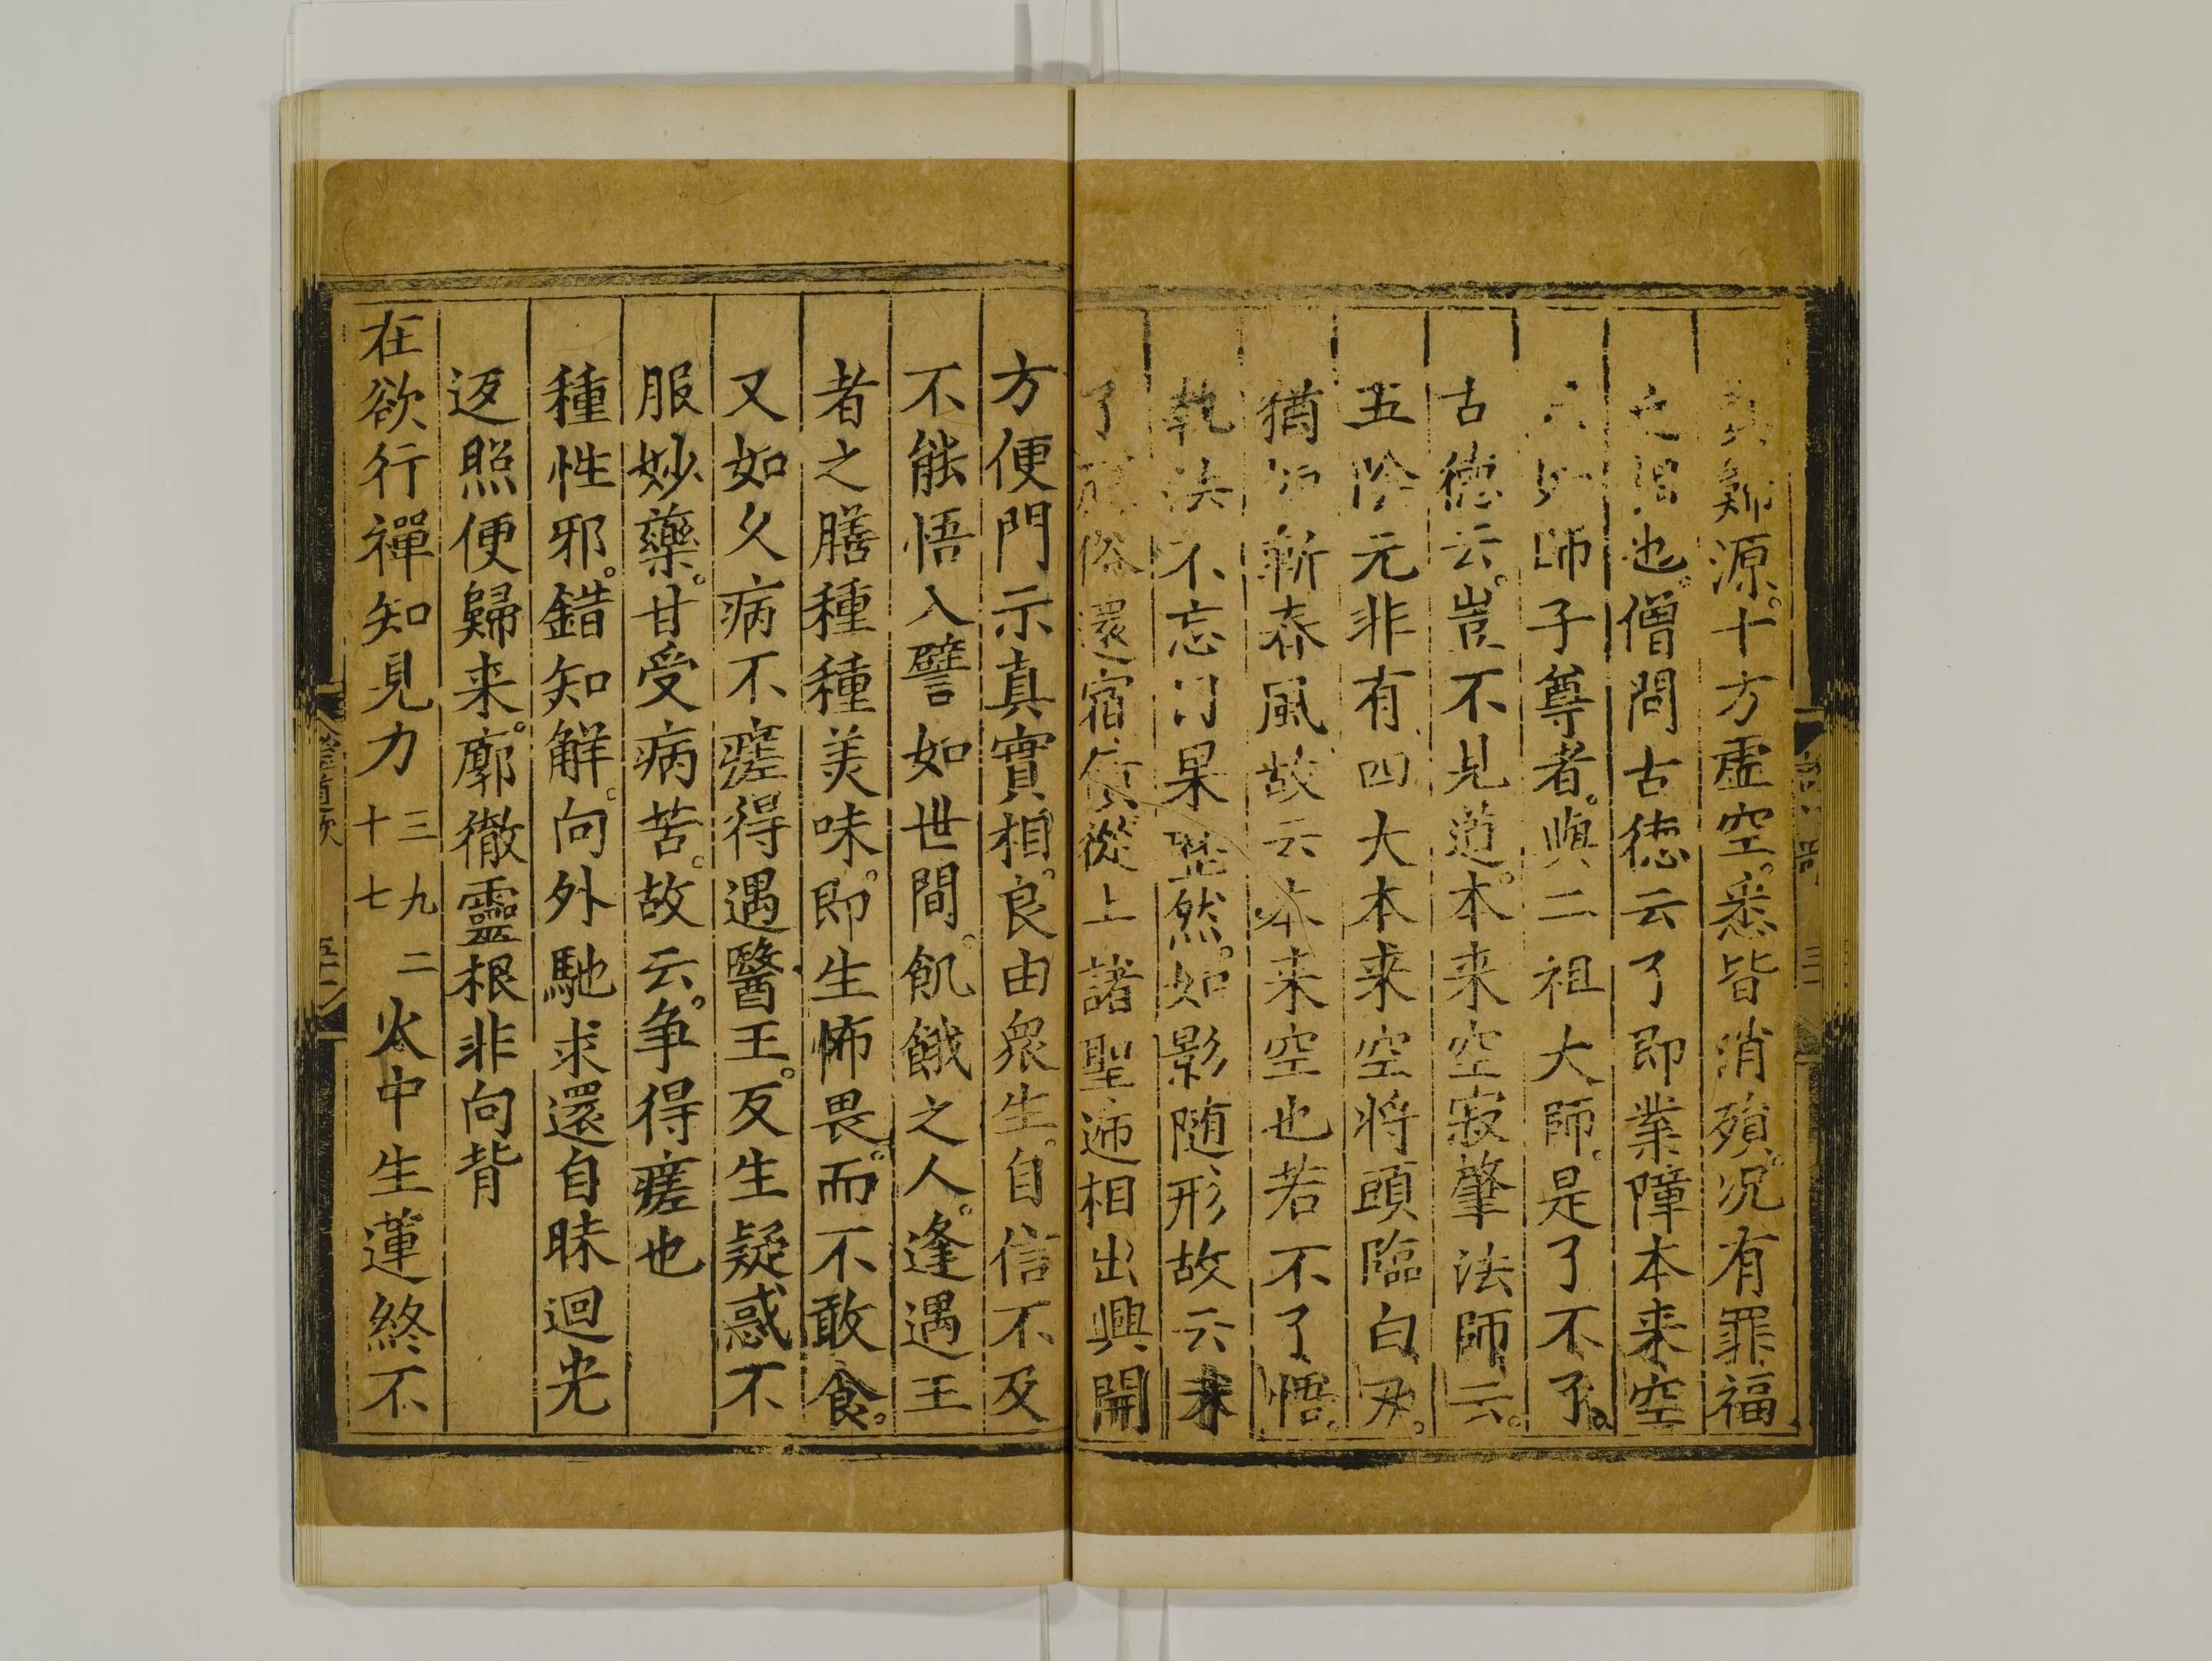 真歸源。十方虛空。悉皆消殞。况有罪福
之相也。僧問古德云了即業障本来空
只如師子尊者。與二祖大師。是了不了。
古德云。豈不見道。本来空寂肇法師云。
五陰元非有四大本来空将頭臨白刃。
猶如斬春風故云本来空也若不了悟。
執法不忘因果歷然。如影随形故云未
了還宿債從上諸聖逓相出興開
方便門示真實相。良由衆生。自信不及
不能悟入譬如世間。飢餓之人。逢遇王
者之膳種種美味。即生怖畏。而不敢食。
又如久病不瘥得遇醫王。反生疑惑不
服妙藥。甘受病苦。故云。争得瘥也
種性邪。錯知解。向外馳求還自昧迴光
返照便歸来。廓徹靈根非向背
在欲行禪知見力 三九二 十七 火中生蓮終不
證道歌